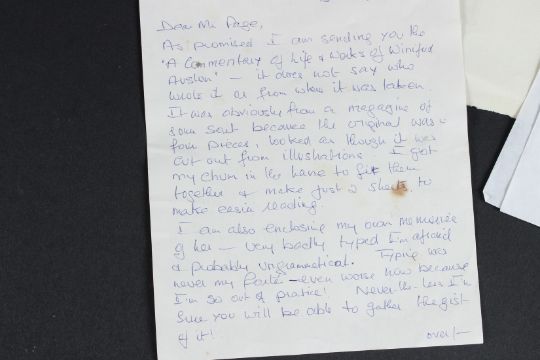 Dear Mr Page,
As promised I am sending you the
"A Commentary of Life & Works of Winifred
Austen" — it does not say who
wrote it or from where it was taken.
It was obviously from a magazine of
some sort because the original was in
four pieces, looked as though it was
cut out from illustrations. I got
my chum in the home to fit them
together & make just 2 sheets to
make easier reading.
I am also enclosing my own memories
of her — very badly typed I'm afraid
& probably ungrammatical. Typing was
never my forte — even worse now because
I'm so out of pratice! Never-the-less I'm
sure you will be able to gather the gist
of it!
over/-